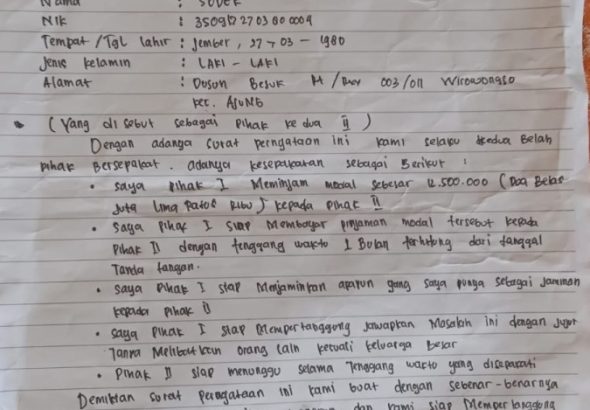 Nama : SODEK
NIK : 3509
Tempat / Tgl lahir : Jember, 27 - 03 - 1980
Jenis kelamin : LAKI - LAKI
Alamat : Dusun Besuk Rt / Rw 003/011 Wirowongso
kec. AJUNG
(Yang di sebut sebagai Pihak ke dua II)
Dengan adanya surat pernyataan ini kami selaku kedua Belah
pihak Bersepakat. adanya kesepakatan sebagai Berikut :
• saya Pihak I Meminjam modal sebesar 12.500.000 (Dua Belas
Juta Lima Ratus Ribu) kepada Pihak II
• saya Pihak I siap Membayar pinjaman modal tersebut kepada
Pihak II dengan tenggang waktu 1 Bulan terhitung dari tanggal
Tanda tangan.
• saya Pihak I siap Menjaminkan apapun yang saya punya sebagai Jaminan
kepada pihak II
• saya Pihak I siap Mempertanggung Jawapkan Masalah ini dengan Jujur
Tanpa Melibatkan orang lain kecuali keluarga Besar
• Pihak II siap menunggu selama Tenggang waktu yang disepakati
Demikian Surat Pernyataan ini kami buat dengan sebenar-benarnya
dan kami siap